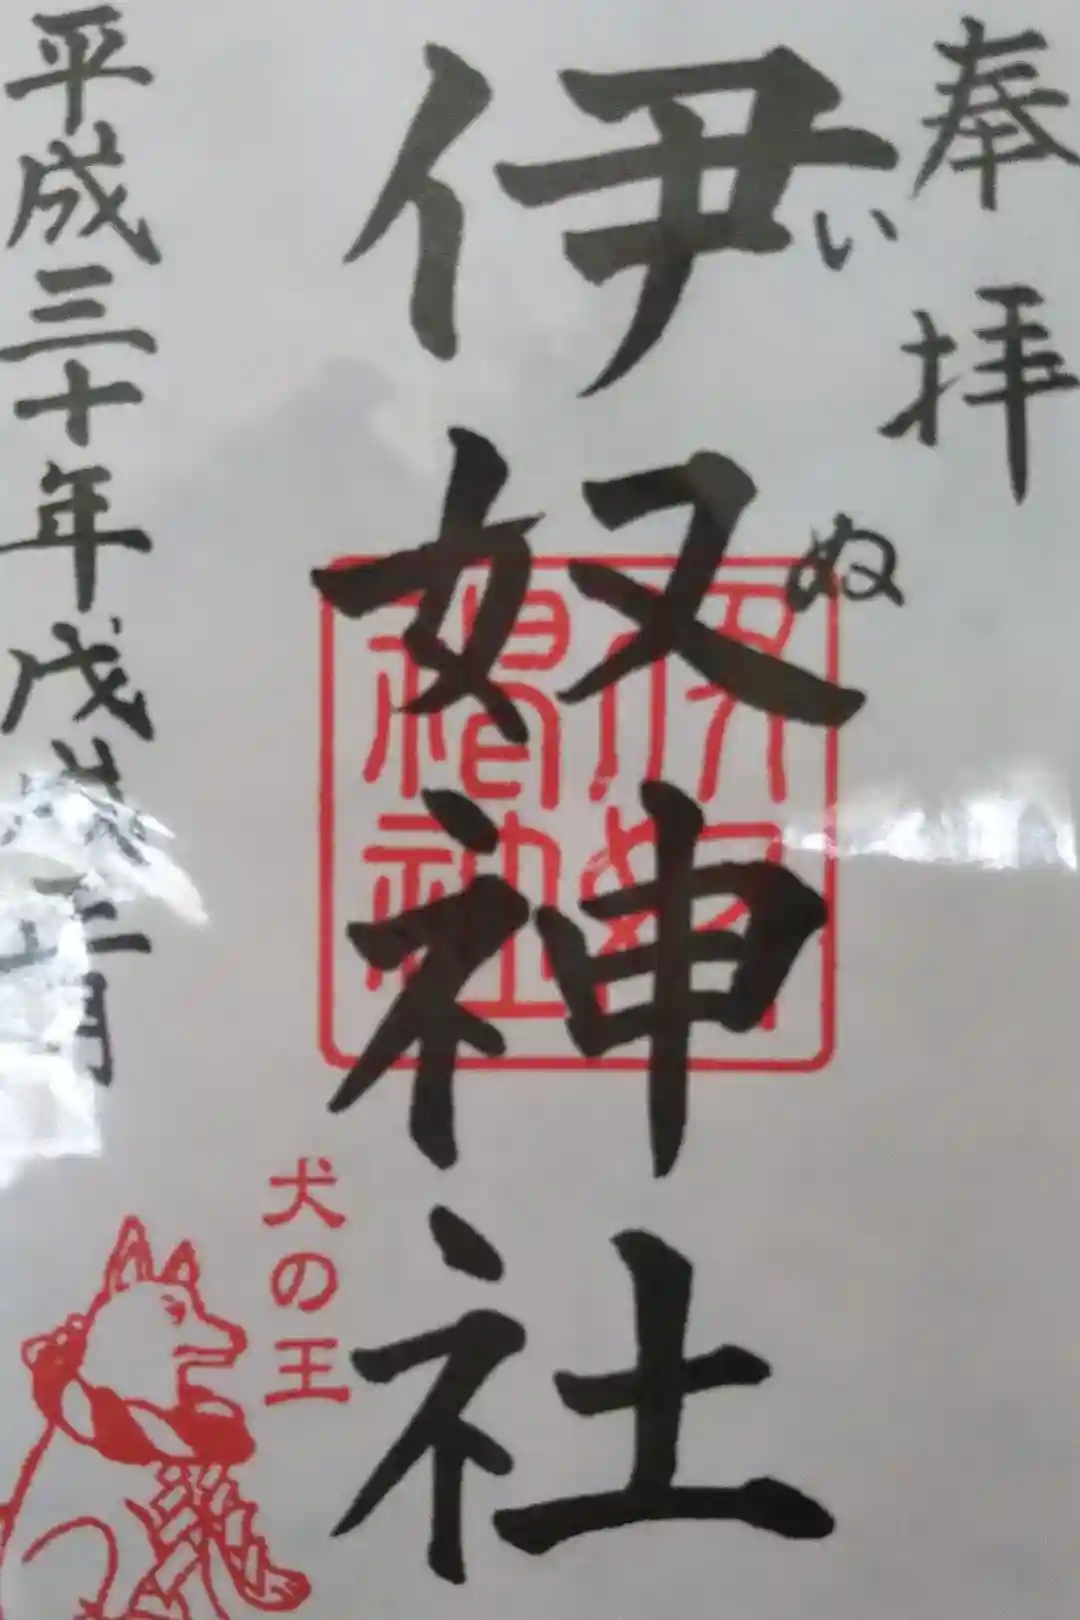 奉拝
伊奴神社
いぬ
伊奴神社
犬の王
平成三十年戊戌歳正月